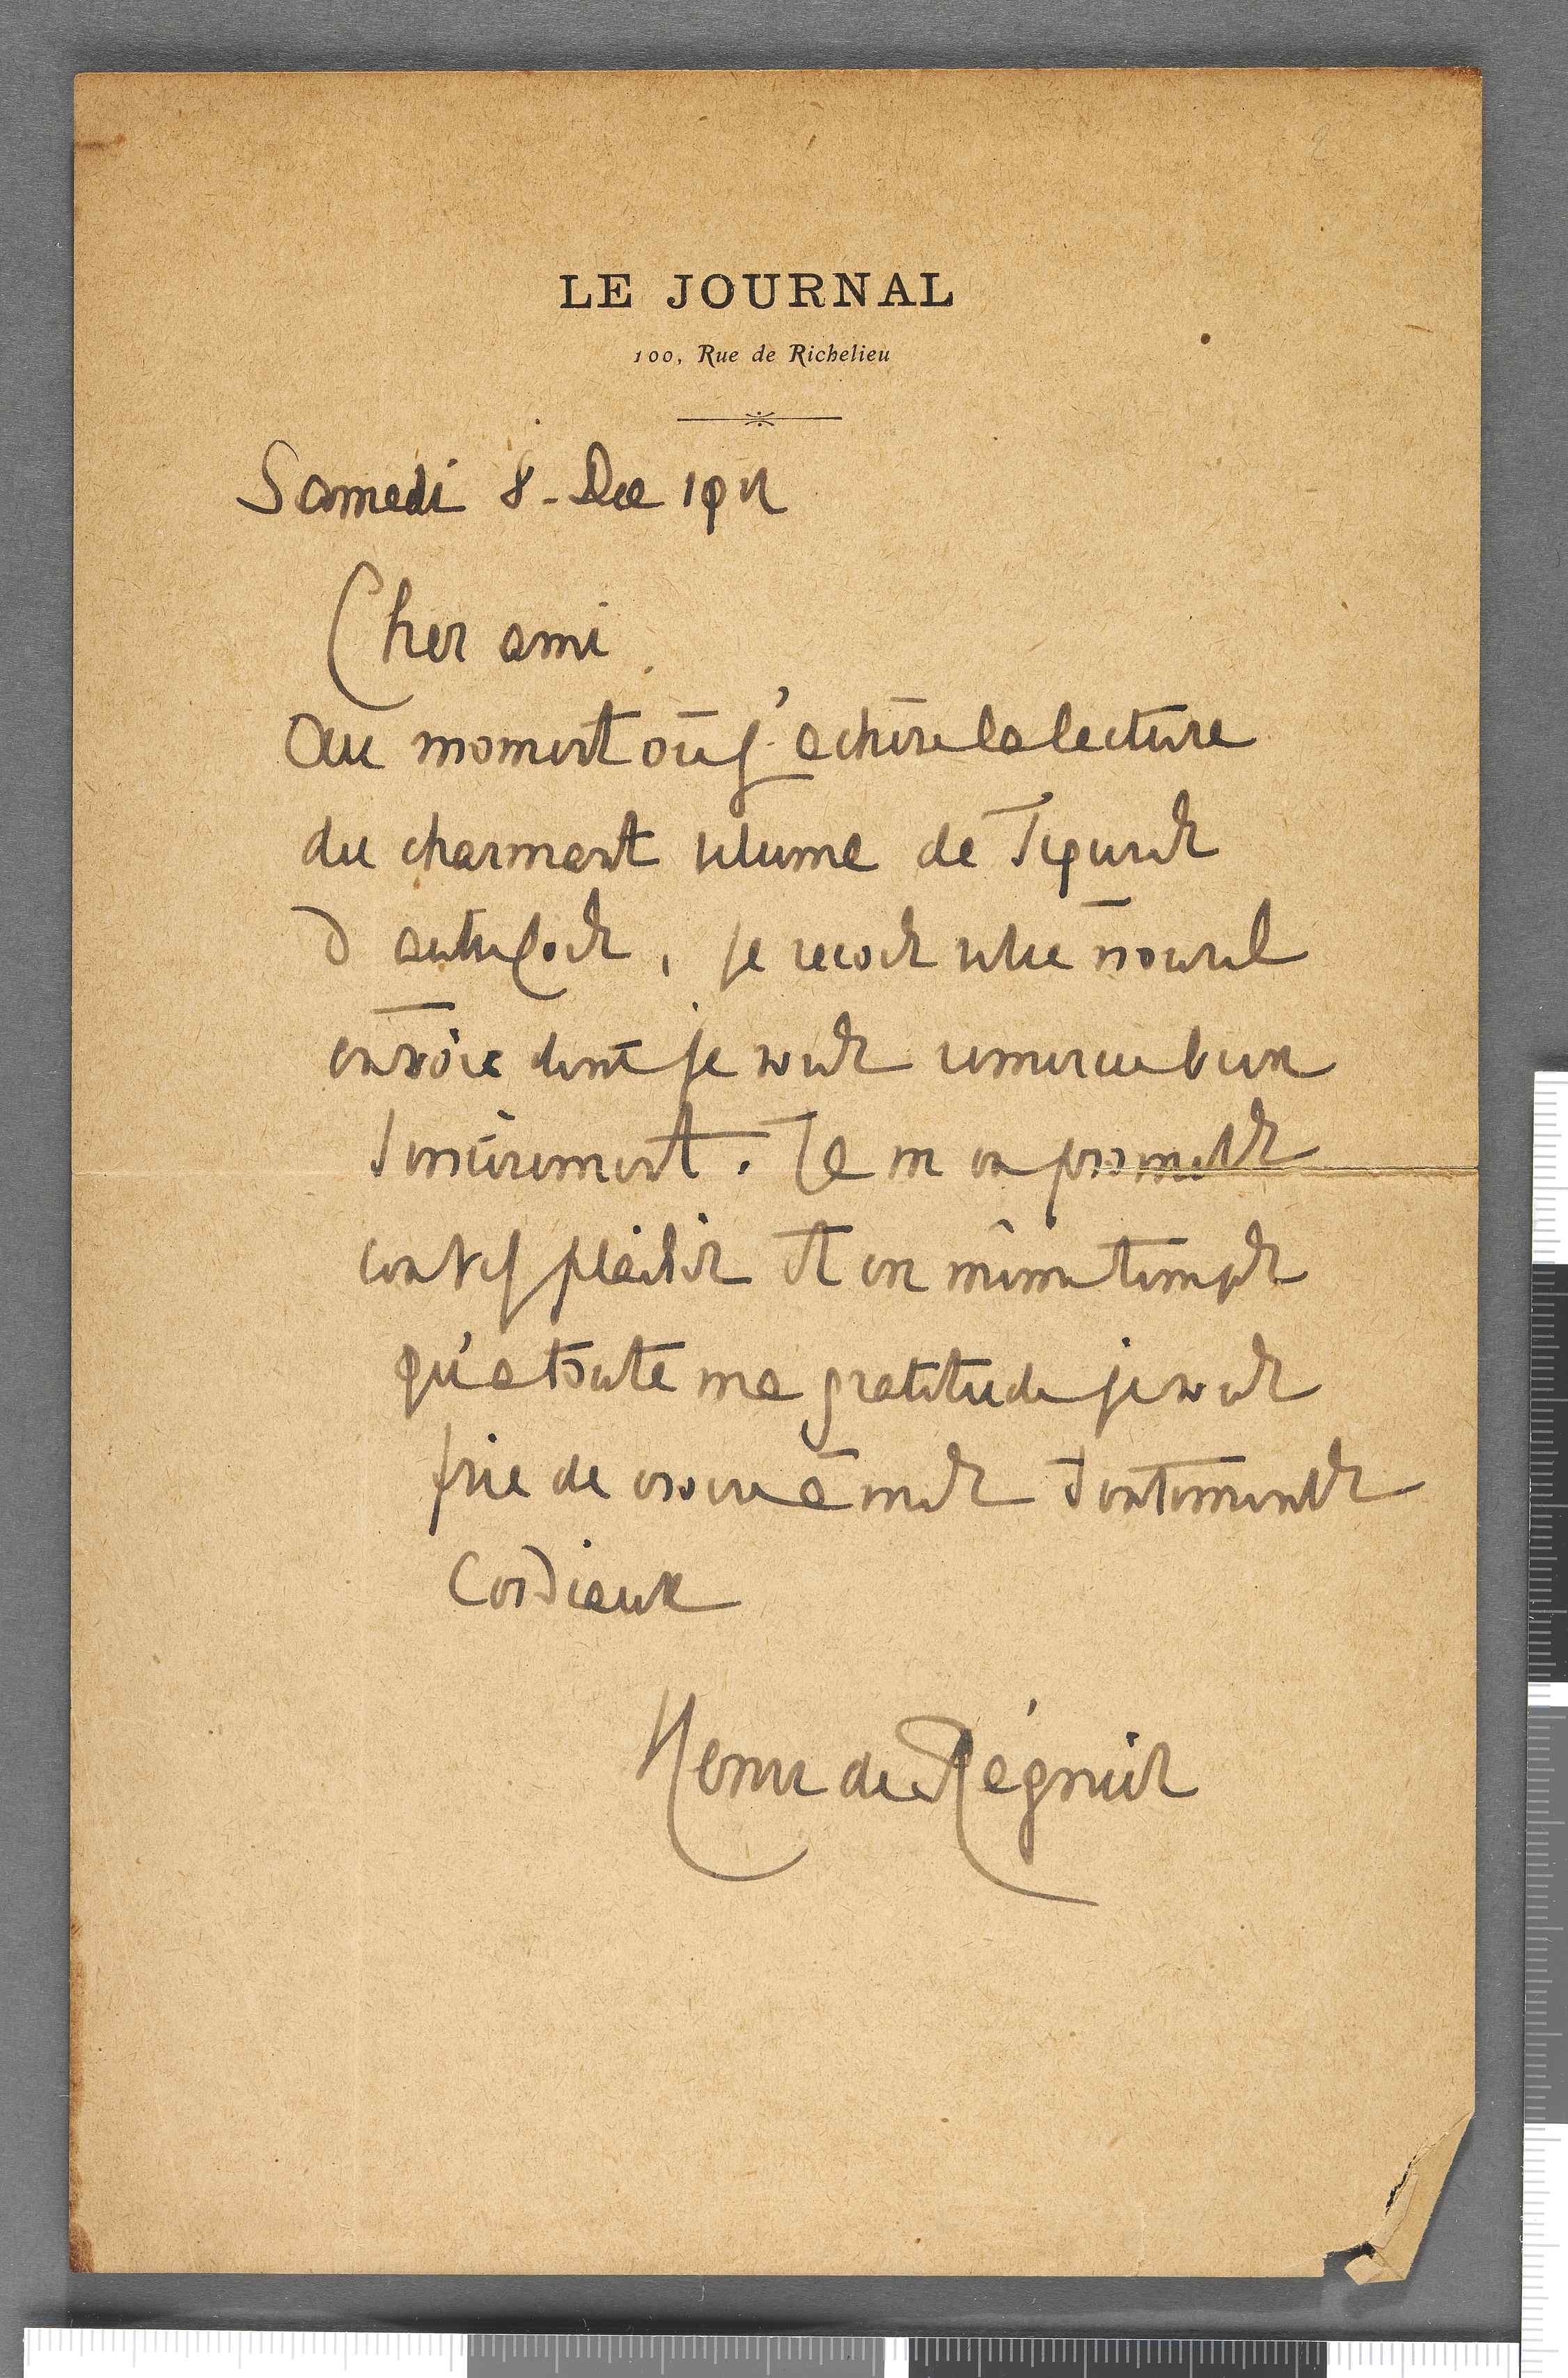 LE JOURNAL
100, Rue de Richelieu
Samedi 8 - Dec
Cher ami
Au moment où j'achève la lecture
du charmant volume de Figures
d'autrefois, je reçois votre nouvel
envoi dont je vous remercie bien
sincèrement. Je m'en promets
un vif plaisir et en même temps
qu'à toute ma gratitude je vous
prie de croire à mes sentiments
cordiaux
Henri de Régnier